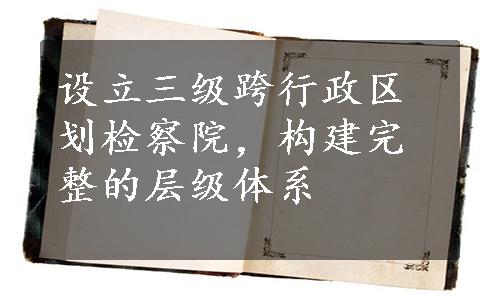 设立三级跨行政区
划检察院，构建完
整的层级体系